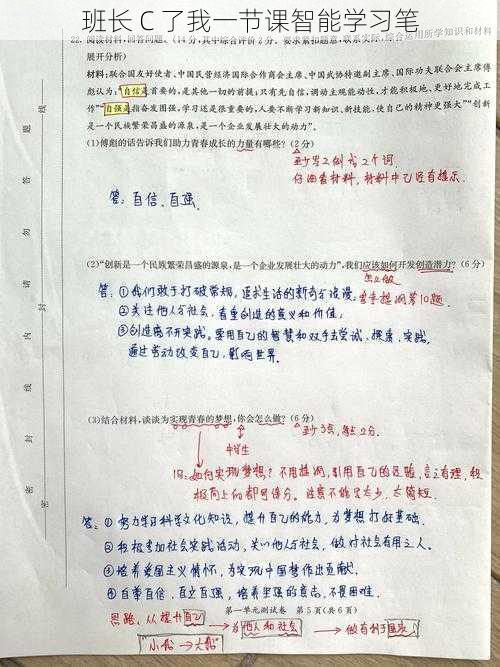 班长 C 了我一节课智能学习笔
22. 阅读材料,回答问题。(14分,其中综合评价2分。要求紧扣题意,联系实际,综合运用所学知识和材料
展开分析)
材料:联合国友好使者、中国民营经济国际合作商会主席、中国武协特邀副主席、国际功夫联合会主席傅
彪认为:"自信是首要的,是其他一切的前提;只有先自信,调动主观能动性,才能积极地、更好地完成工
作""自强是指奋发图强,学习还是很重要的,人要不断学习新知识、新技能,使自己的精神更强大""创新
是一个民族繁荣昌盛的源泉,是一个企业发展壮大的动力"。
(1)傅彪的话告诉我们助力青春成长的力量有哪些?(2分)
至少写2例或2个词
仔细看材料,材料中已经有提示.
答:自信、自强.
(2)"创新是一个民族繁荣昌盛的源泉,是一个企业发展壮大的动力",我们应该如何开发创造潜力?(6分)
怎么做
答:①我们敢于打破常规,追求生活的新奇与浪漫;
背手提纲第10题.
②关注他人与社会,看重创造的意义和价值;
③创造离不开实践.要用自己的智慧和双手去尝试、探索、实践,
通过劳动改变自己,影响世界.
(3)结合材料,谈谈为实现青春的梦想,你会怎么做?(6分)
至少3点,每点2分.
中学生
问:如何实现梦想?不用提纲,引用自己的经验,言之有理,积
极向上的都可得分.注意不能写太少,太简短.
答:①努力学习科学文化知识,提升自己的能力,为梦想打好基础.
②积极参加社会实践活动,关心他人与社会,做对社会有用之人.
③培养爱国主义情怀,为实现中国梦作出贡献.
④自尊自信、自立自强,培养坚强的意志,不畏困难.
第一单元测试卷 第5页(共6页)
思路:从提升自己→为他人和社会→做有利于国家
"小我→大我"
密 封 线 内 请 勿 答 题